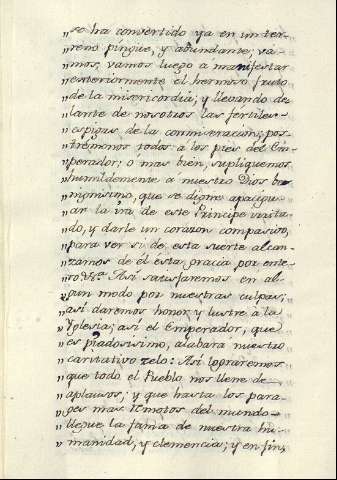 „se ha convertido ya en un ter-
„reno pingüe, y abundante; va-
„mos, vamos luego a manifestar
„exteriormente el hermoso fruto
„de la misericordia; y llevando de-
„lante de nosotros las fertiles
„espigas de la conmiseracion, pos-
„tremonos todos a los pies del Em-
„perador; o mas bien, supliquemos
„humildemente a nuestro Dios be-
„nignisimo, que se digne apacigu-
„ar la ira de este Principe irrita-
„do, y darle un corazon compasivo,
„para ver si de esta suerte alcan-
„zamos de él esta gracia por ente-
„ro. Asi satisfaremos en al-
„gun modo por nuestras culpas;
„asi daremos honor, y lustre a la
„Yglesia; asi el Emperador, que
„es piadosisimo, alabara nuestro
„caritativo zelo: Asi lograremos
„que todo el Pueblo nos llene de
„aplausos; y que hasta los para-
„ges mas remotos del mundo
„llegue la fama de nuestra hu-
„manidad, y clemencia; y en fin,